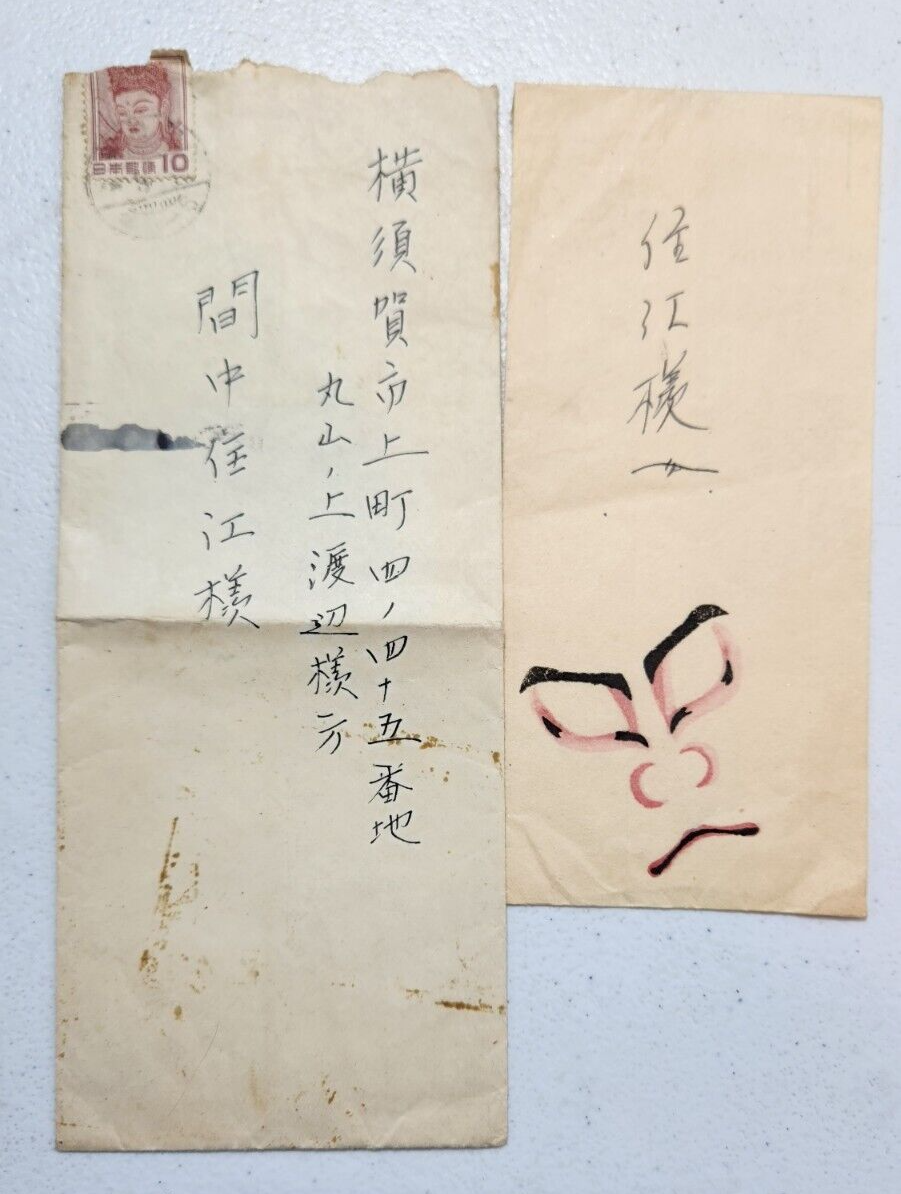 日本郵便
10
横須賀市上町四ノ四十五番地
丸山ノ上渡辺様方
間中住江様
住江様